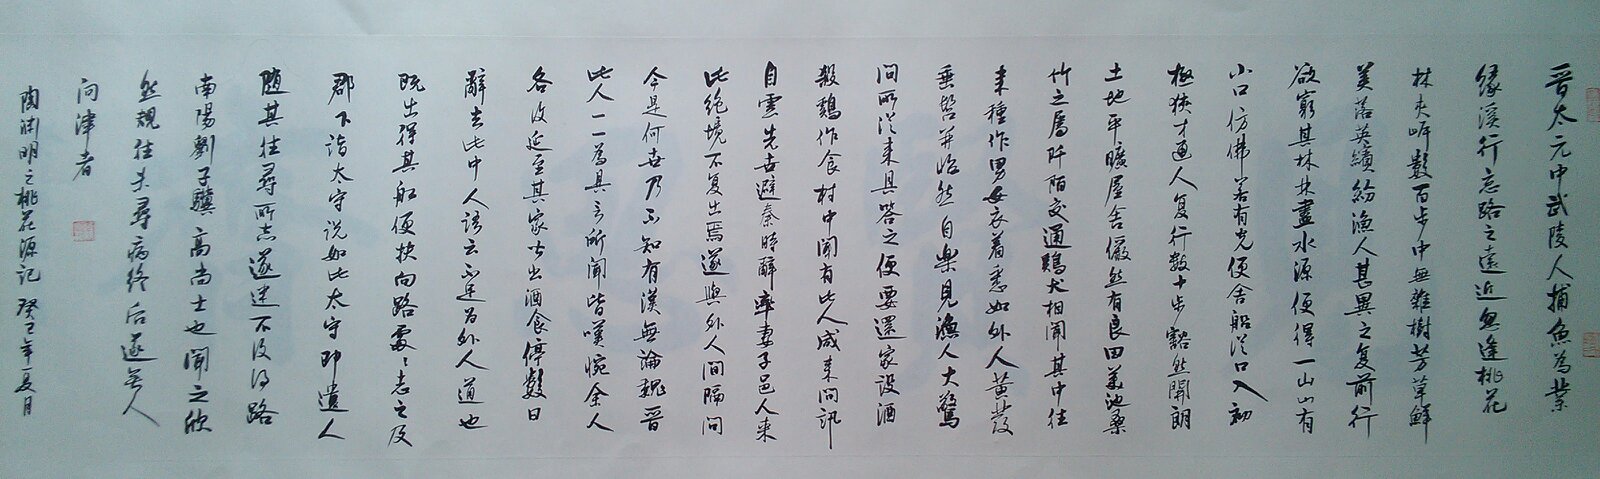 晋太元中武陵人捕魚為業
缘溪行忘路之遠近忽逢桃花
林夹岸數百步中無雜樹芳草鮮
美落英繽紛漁人甚異之复前行
欲窮其林林盡水源便得一山山有
小口仿佛若有光便舍船从口入初
極狹才通人复行数十步豁然開朗
土地平曠屋舍儼然有良田美池桑
竹之屬阡陌交通鷄犬相聞其中往
来種作男女衣着悉如外人黄髮
垂髫并怡然自樂見漁人大驚
问所从来具答之便要還家設酒
殺鷄作食村中聞有此人咸来问訊
自雲先古避秦時辭率妻子邑人来
此绝境不复出焉遂與外人間隔问
今是何世乃不知有漢無論魏晋
此人一一為具言所聞皆嘆惋余人
各復延至其家皆出酒食停數日
辭去此中人語云不足为外人道也
既出得其船便扶向路處〻志之及
郡下詣太守说如此太守即遣人
随其往尋所志遂迷不復得路
南陽劉子驥高尚士也聞之欣
然規往未尋病终后遂無人
问津者
陶渊明之桃花源记 癸巳年夏月